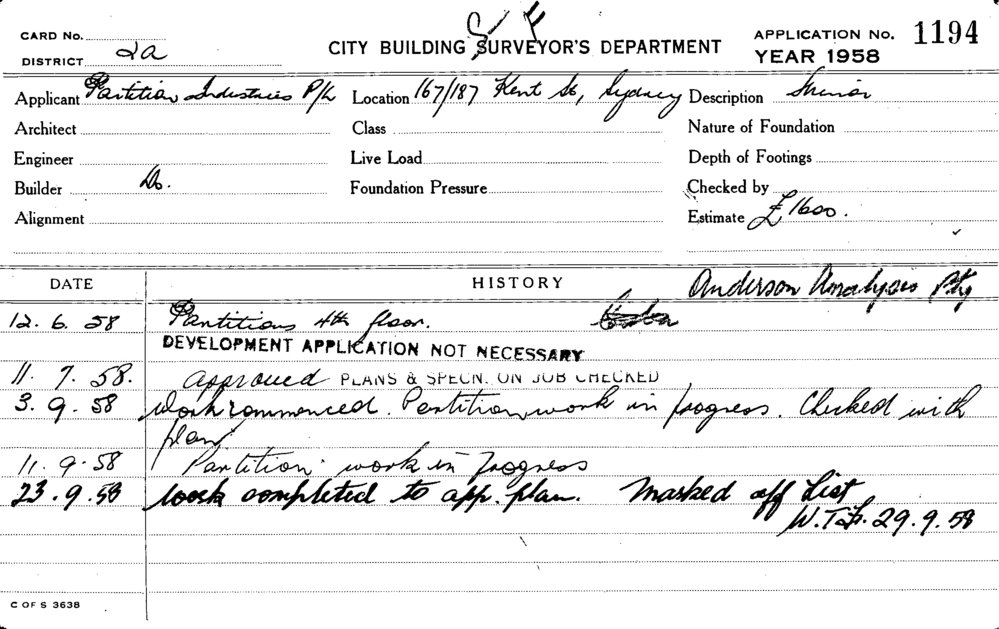 CARD No.
DISTRICT 2a
CITY BUILDING SURVEYOR'S DEPARTMENT
APPLICATION No. 1194
YEAR 1958
Applicant Partition Industries P/L
Location 167/187 Kent St, Sydney
Description Minor
Architect
Class
Nature of Foundation
Engineer
Live Load
Depth of Footings
Builder Do.
Foundation Pressure
Checked by
Alignment
Estimate £1600.
DATE
HISTORY
Anderson Analysis Pty
12.6.58 Partitions 4th floor.
DEVELOPMENT APPLICATION NOT NECESSARY
11.7.58. Approved PLANS & SPECN. ON JOB CHECKED
3.9.58 Work commenced. Partition work in progress. Checked with
plan
11.9.58 Partition work in progress
23.9.58 Work completed to app. plan. Marked off List
29.9.58
C OF S 3638